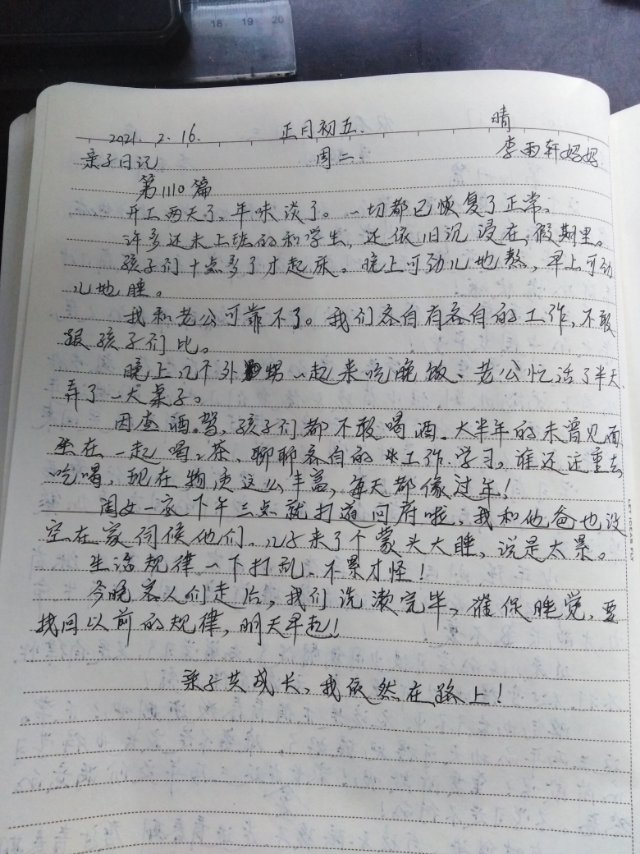 18 19 20
2021. 2. 16. 正月初五. 晴
亲子日记 周二. 李雨轩妈妈
第1110篇
开工两天了，年味淡了。一切都已恢复了正常。
许多还未上班的和学生，还依旧沉浸在假期里。
孩子们十点多了才起床。晚上可劲儿地熬，早上可劲
儿地睡。
我和老公可靠不了。我们各自有各自的工作，不敢
跟孩子们比。
晚上几个外甥一起来吃晚饭、老公忙活了半天
弄了一大桌子。
因查酒驾，孩子们都不敢喝酒。大半年的未曾见面
坐在一起喝喝茶、聊聊各自的工作.学习，谁还注重去
吃喝，现在物质这么丰富，每天都像过年！
闺女一家下午三点就打道回府啦，我和他爸也没
空在家伺候他们。儿子来了个蒙头大睡，说是太累。
生活规律一下打乱，不累才怪！
今晚客人们走后，我们洗漱完毕，催促睡觉，要
找回以前的规律，明天早起！
亲子共成长，我依然在路上！